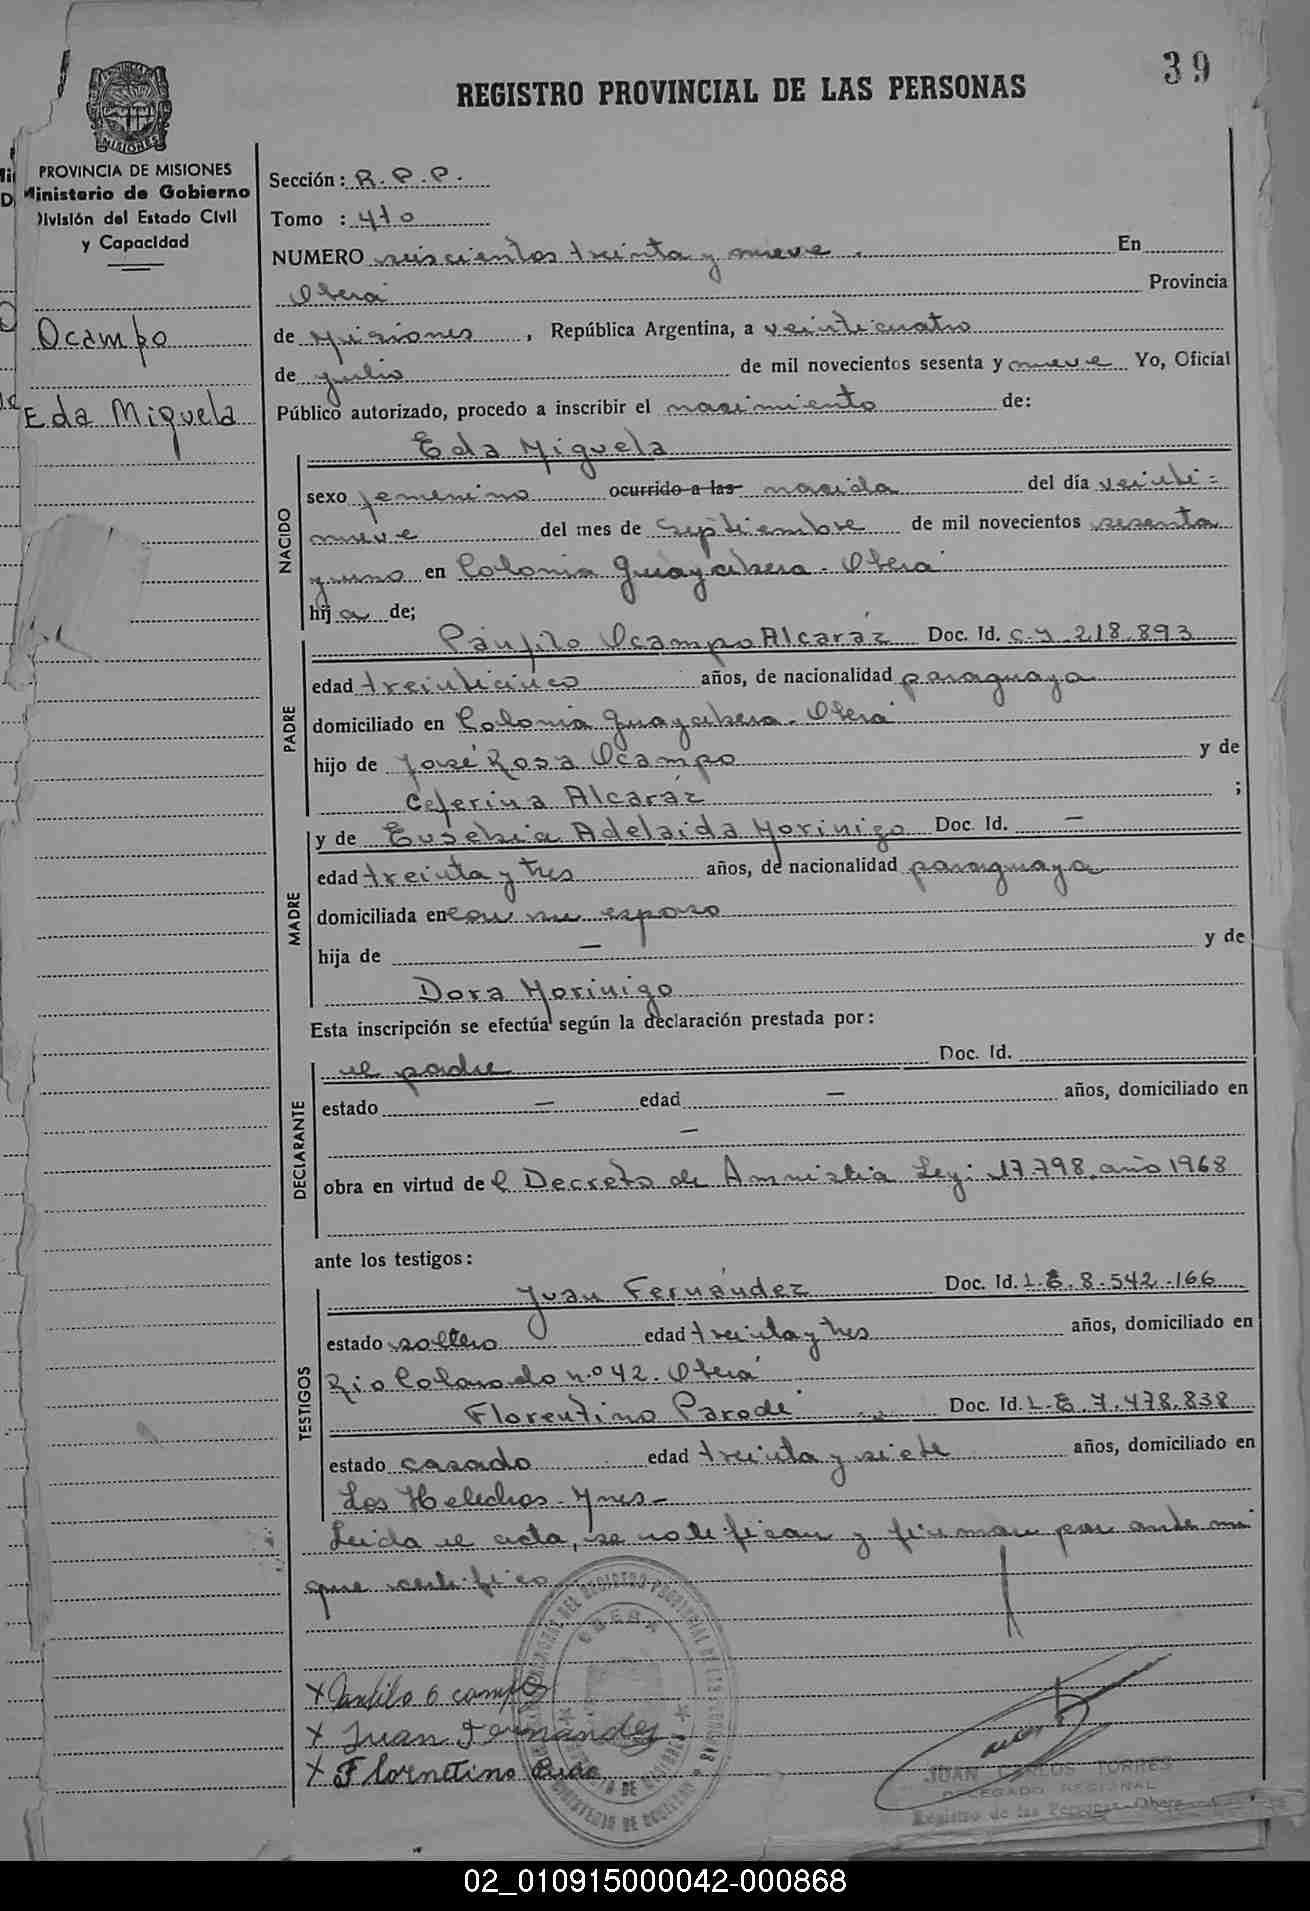 39
REGISTRO PROVINCIAL DE LAS PERSONAS
MISIONES
PROVINCIA DE MISIONES
Ministerio de Gobierno
División del Estado Civil
y Capacidad
Ocampo
Eda Miguela
Sección: R.P.P.
Tomo : 4to
NUMERO seiscientos treinta y nueve . En
Oberá Provincia
de Misiones , República Argentina, a veinticuatro
de julio de mil novecientos sesenta y nueve Yo, Oficial
Público autorizado, procedo a inscribir el nacimiento de:
NACIDO
Eda Miguela
sexo femenino ocurrido a las nacida del día veinti=
nueve del mes de Septiembre de mil novecientos sesenta
y uno en Colonia Guayabera. Oberá
hija de;
PADRE
Pánfilo Ocampo Alcaráz Doc. Id. C.I. 218.893
edad treinticinco años, de nacionalidad paraguaya
domiciliado en Colonia Guayabera. Oberá
hijo de José Rosa Ocampo y de
Ceferina Alcaráz ;
MADRE
y de Eusebia Adelaida Morinigo Doc. Id. —
edad treinta y tres años, de nacionalidad paraguaya
domiciliada en con su esposo
hija de — y de
Dora Morinigo
Esta inscripción se efectúa según la declaración prestada por:
DECLARANTE
el padre Doc. Id.
estado — edad — años, domiciliado en
—
obra en virtud de l Decreto de Amnistia Ley: 17.798, año 1968
ante los testigos:
TESTIGOS
Juan Fernández Doc. Id. L.E. 8.542.166
estado soltero edad treinta y tres años, domiciliado en
Rio Colorado n.º 42. Oberá
Florentino Parodi Doc. Id. L.E. 7.478.838
estado casado edad treinta y siete años, domiciliado en
Los Helechos - Mnes -
Leida el acta, se notifican y firman por ante mi
que certifico
x Panfilo Ocampo
x Juan Fernandez
x Flornetino
JUAN CARLOS TORRES
DELEGADO REGIONAL
Registro de las Personas - Obera
02_010915000042-000868